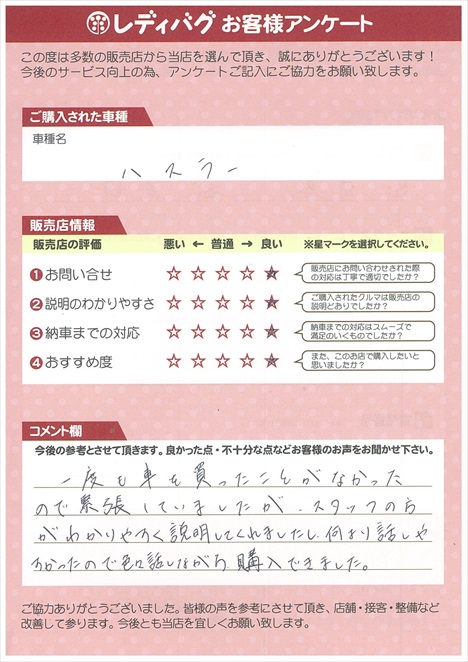 レディバグ お客様アンケート
この度は多数の販売店から当店を選んで頂き、誠にありがとうございます！
今後のサービス向上の為、アンケートご記入にご協力をお願い致します。
ご購入された車種
車種名
ハスラー
販売店情報
販売店の評価 悪い ← 普通 → 良い ※星マークを選択してください。
❶お問い合せ ☆ ☆ ☆ ☆ ★ 販売店にお問い合わせされた際
の対応は丁寧で適切でしたか？
❷説明のわかりやすさ ☆ ☆ ☆ ☆ ★ ご購入されたクルマは販売店の
説明どおりでしたか？
❸納車までの対応 ☆ ☆ ☆ ☆ ★ 納車までの対応はスムーズで
満足のいくものでしたか？
❹おすすめ度 ☆ ☆ ☆ ☆ ★ また、このお店で購入したいと
思いましたか？
コメント欄
今後の参考とさせて頂きます。良かった点・不十分な点などお客様のお声をお聞かせ下さい。
一度も車を買ったことがなかった
ので緊張していましたが、スタッフの方
がわかりやすく説明してくれましたし、何より話しや
すかったので色々話しながら購入できました。
ご協力ありがとうございました。皆様の声を参考にさせて頂き、店舗・接客・整備など
改善して参ります。今後とも当店を宜しくお願い致します。